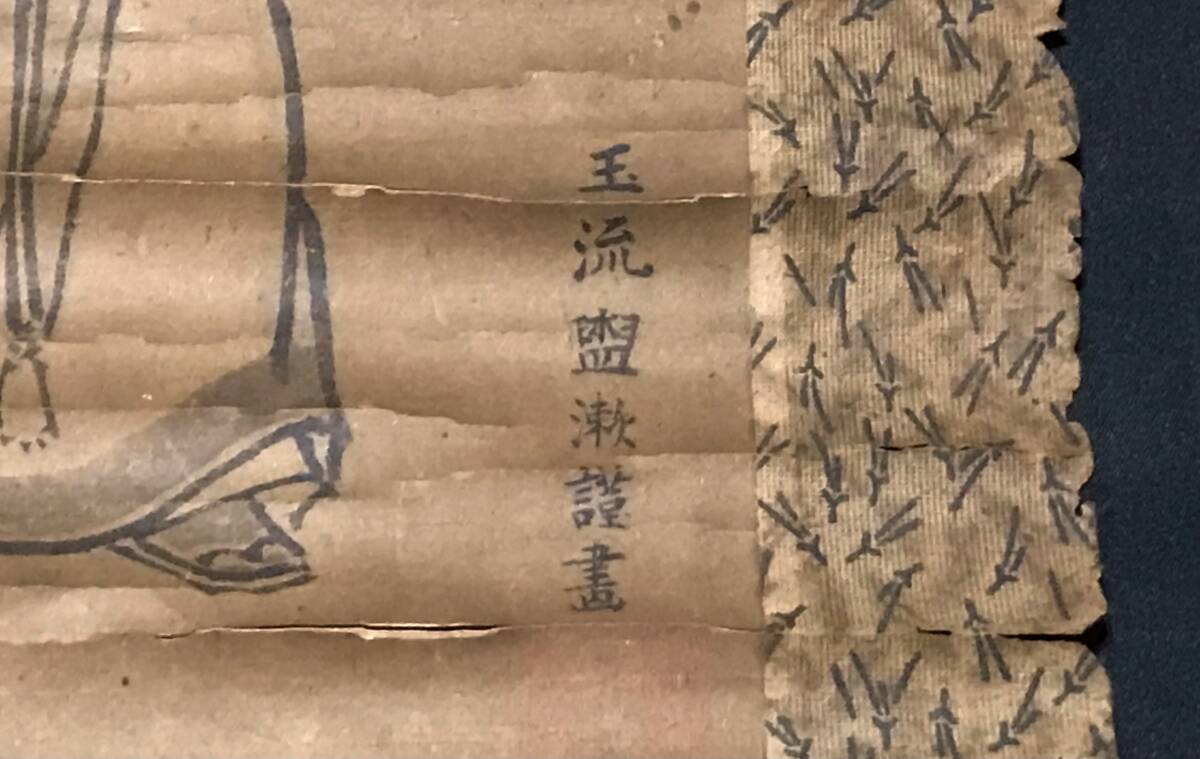 玉流盥漱謹畫